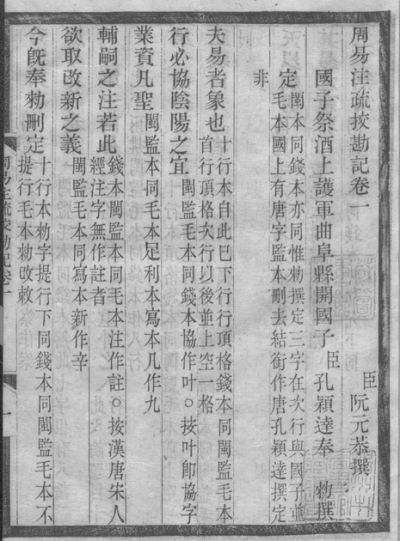 周易注疏挍勘記卷一
臣阮元恭撰
國子祭酒上護軍曲阜縣開國子臣孔穎達奉勑撰
定閩本同錢本亦同惟勑撰定三字在次行與國子並
毛本國上有唐字監本刪去結銜作唐孔穎達撰定
非
夫易者象也十行本自此已下行行頂格錢本同閩監毛本
首行頂格次行以後並上空一格
行必協陰陽之宜閩監毛本同錢本協作叶○按叶卽協字
業資凡聖閩監本同毛本足利本寫本凡作九
輔嗣之注若此錢本閩監本同毛本注作註○按漢唐宋人
經注字無作註者
欲取改新之義閩監毛本同寫本新作辛
今旣奉勑刪定十行本勑字提行下同錢本同閩監毛本不
提行毛本勑改敕